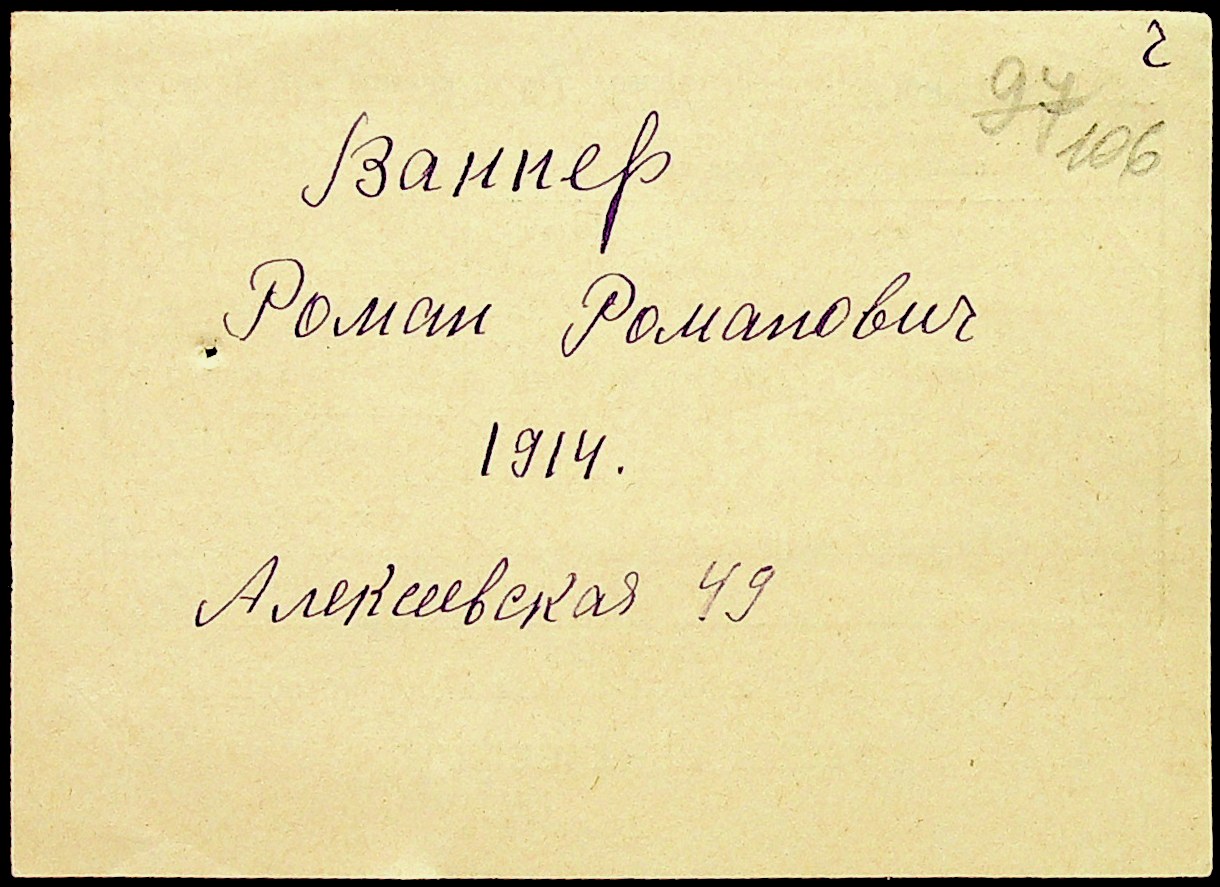 97
106
Ваннер
Роман Романович
1914.
Алексеевская 49